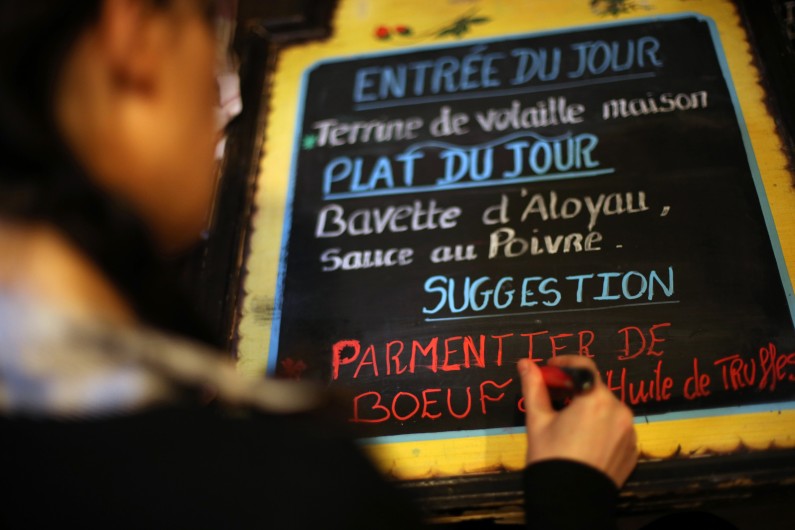 ENTRÉE DU JOUR
Terrine de volaille maison
PLAT DU JOUR
Bavette d'Aloyau,
Sauce au Poivre.
SUGGESTION
PARMENTIER DE
BOEUF Huile de Truffes